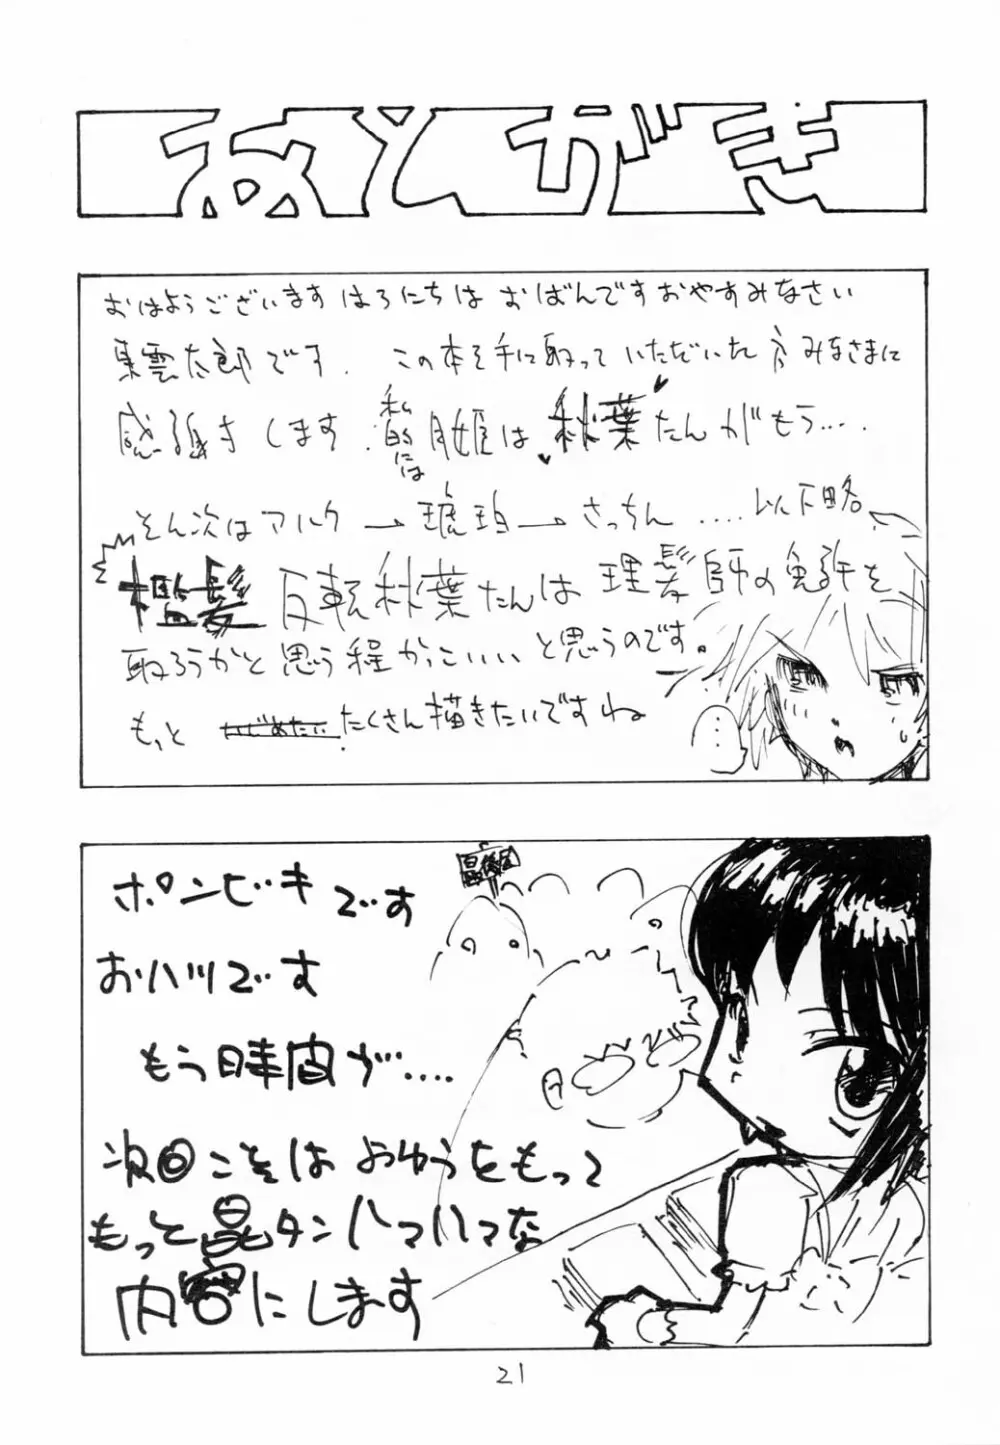 あとがき
おはようございます はろにちは おばんです おやすみなさい
東雲太郎です. この本を手に取っていただいた方みなさまに
感謝をします. 私的には月姫は秋葉たんがもう....
そん次はアルク→琥珀→さっちん....以下略
檻髪 反転秋葉たんは理髪師の免許を
取ろうかと思う程かっこいいと思うのです。
もっと いじめたい たくさん描きたいですね
…
ポンビキです
おハツです
もう時間が....
次回こそは おゆうをもって
もっと晶タンハァハァな
内容にします
最後尾
21